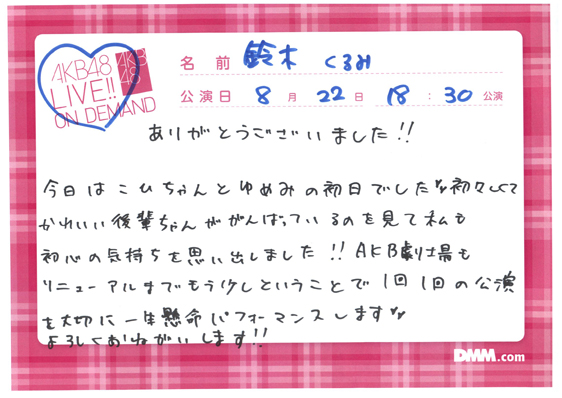 AKB48
LIVE!!
ON DEMAND
AKB
48
名前 鈴木 くるみ
公演日 8月 22日 18:30公演
ありがとうございました!!
今日はこひちゃんとゆめみの初日でした 初々しくて
かわいい後輩ちゃんががんばっているのを見て私も
初心の気持ちを思い出しました!! AKB劇場も
リニューアルまでもう少しということで1回1回の公演
を大切に一生懸命パフォーマンスします
よろしくおねがいします!!
DMM.com